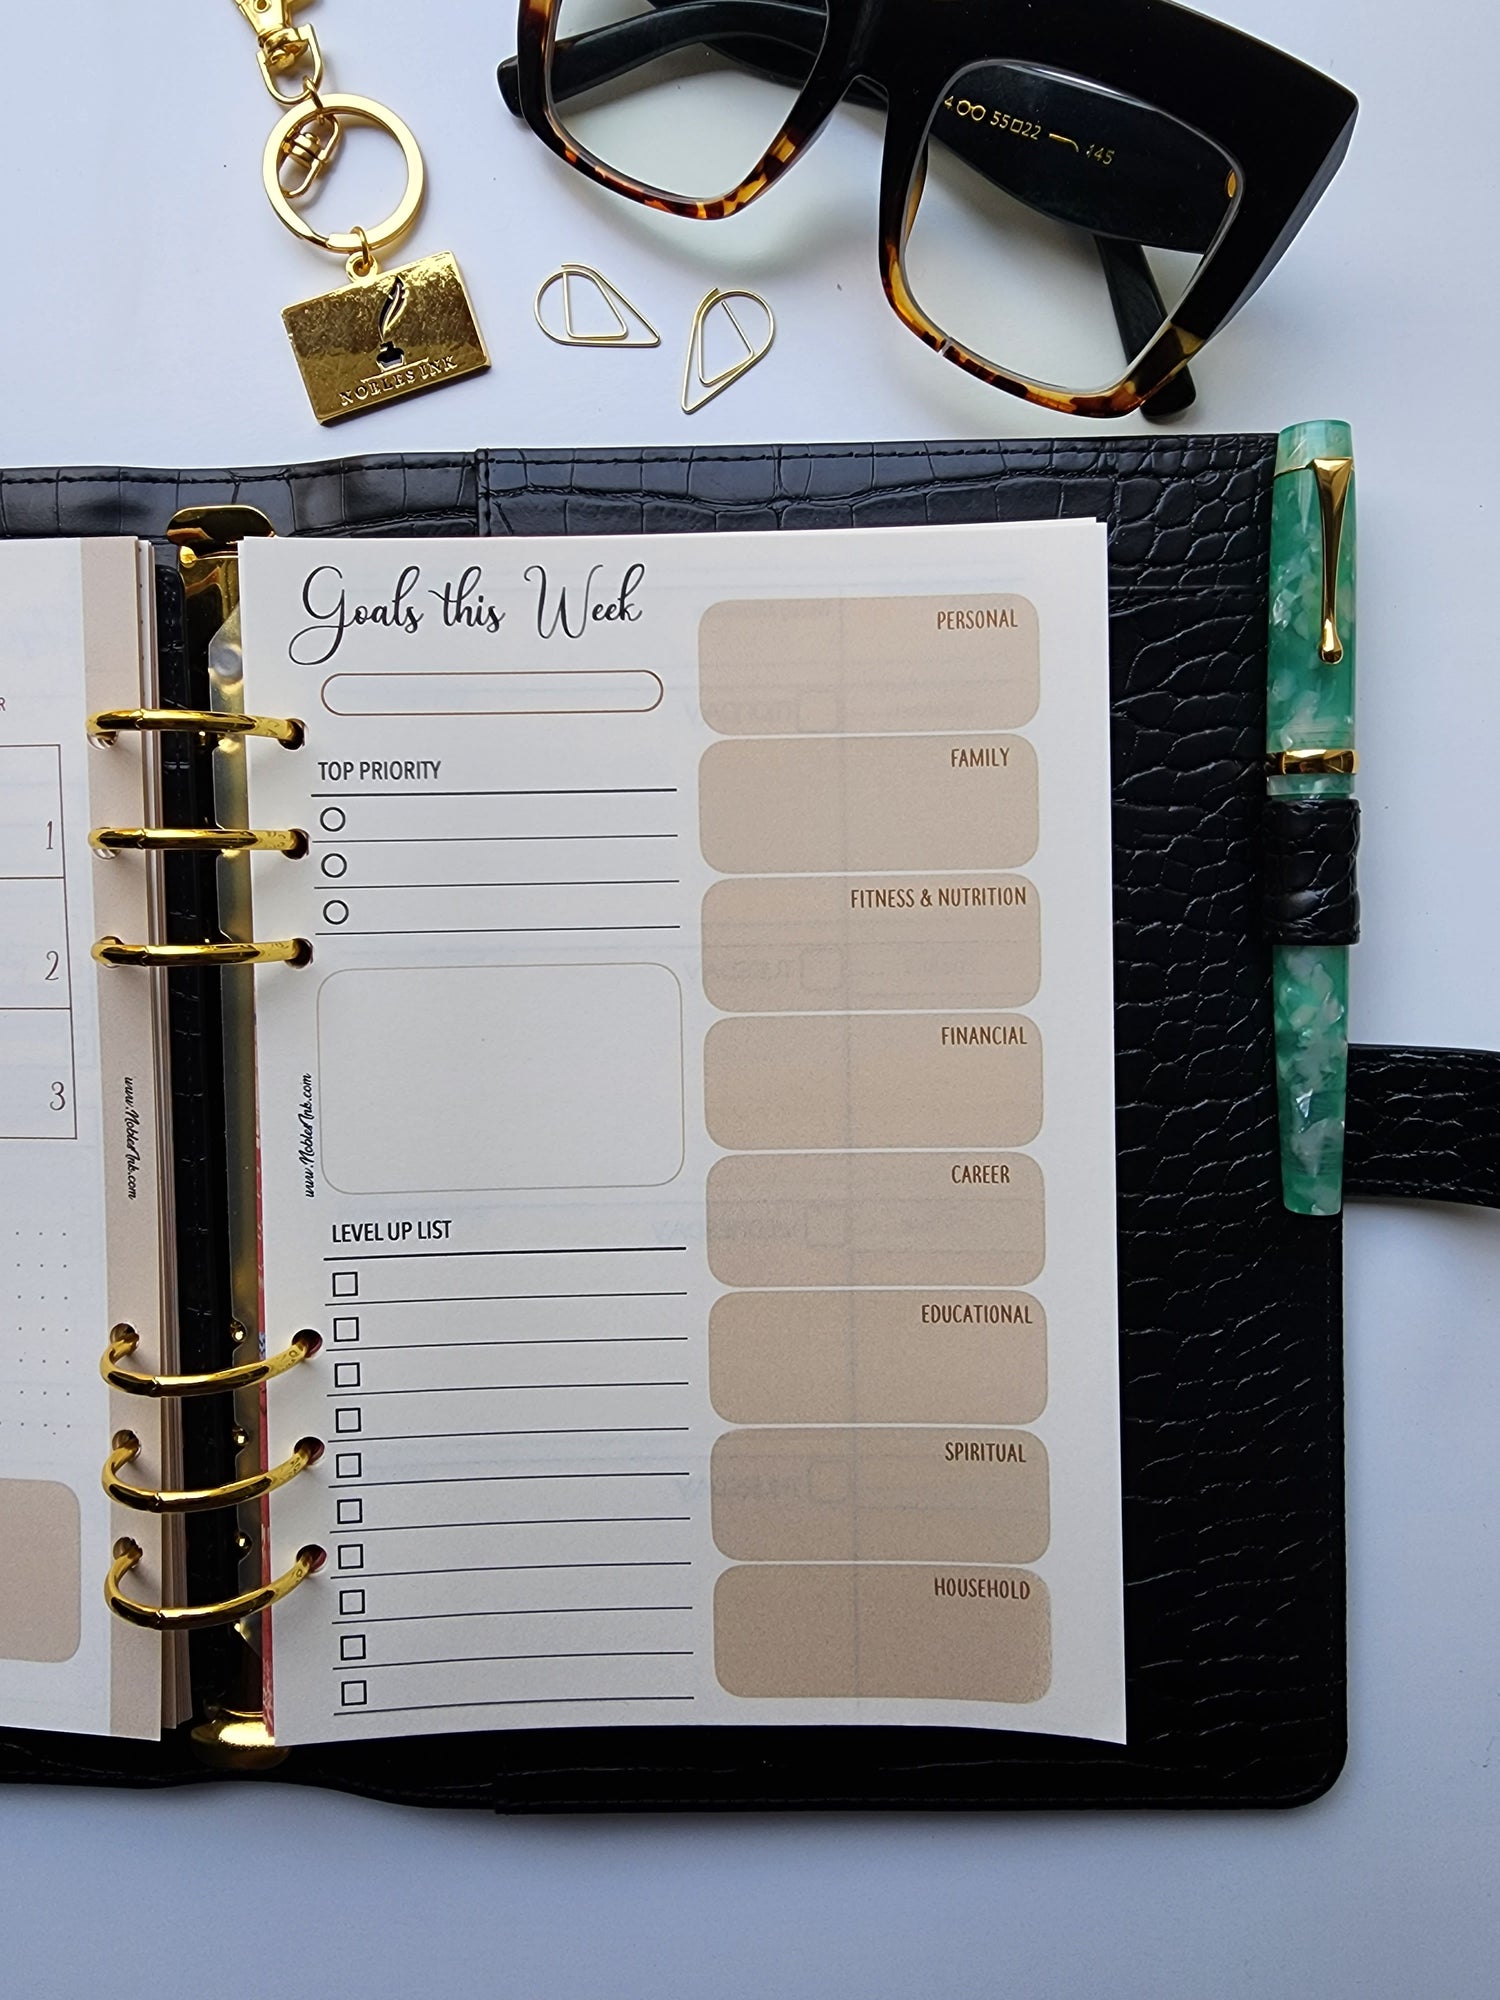 400 55□22 145
NOBLES INK
Goals this Week
TOP PRIORITY
LEVEL UP LIST
www.NoblesInk.com
PERSONAL
FAMILY
FITNESS & NUTRITION
FINANCIAL
CAREER
EDUCATIONAL
SPIRITUAL
HOUSEHOLD
R
1
2
3
www.NoblesInk.com